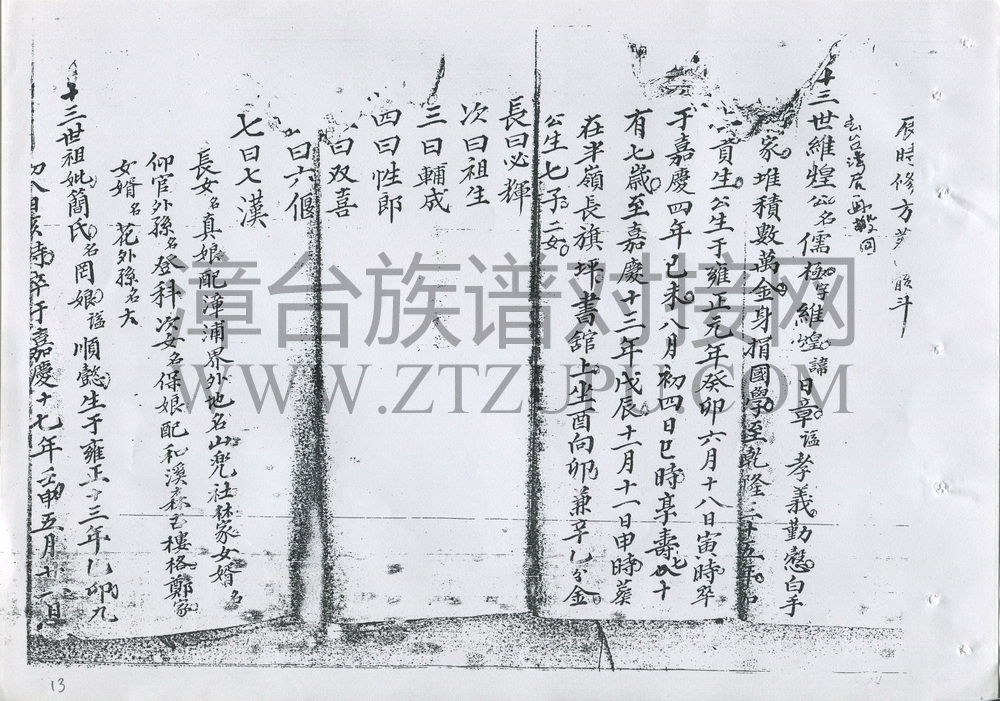 辰時修方
十三世維煌公名儒極字維煌諱日章謚孝義勤慜白手
去台湾居
家堆積數萬金身捐國學至乾隆三十五年
貢生公生于雍正元年癸卯六月十八日寅時卒
于嘉慶四年己未八月初四日巳時享壽七十
有七歲至嘉慶十三年戊辰十二月十一日申時葵
在半嶺長旗坪書舘上坐酉向卯兼辛乙分金
公生七子二女
長曰必輝
次曰祖生
三曰輔成
四曰性郎
曰双喜
曰六偃
七曰七漢
長女名真娘配漳浦界外地名山兜社林家女婿名
仰官外孫名登科次女名保娘配和溪森玉樓格鄭家
女婿名花外孫名大
十三世祖妣簡氏名罔娘謚順懿生于雍正十三年乙卯九
初八日亥時卒于嘉慶十七年壬申五月十
漳台族谱对接网
WWW.ZTZUPU.COM
13